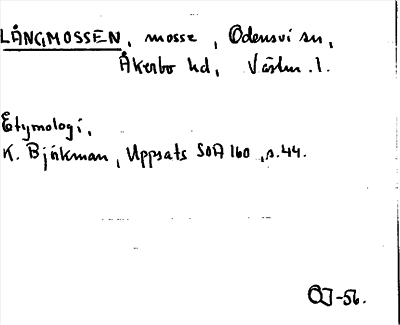 LÅNGMOSSEN, mosse, Odensvi sn,
Åkerbo hd, Västm. l.
Etymologi,
K. Björkman, Uppsats SOA 160, s. 44.
OJ-56.